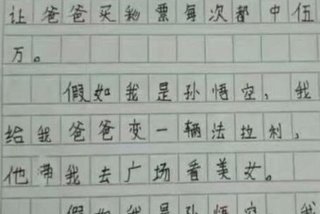 让爸爸买彩票每次都中伍
万。
假如我是孙悟空，我
给我爸爸变一辆法拉利，
他带我去广场看美女。
假如我是孙悟空，我